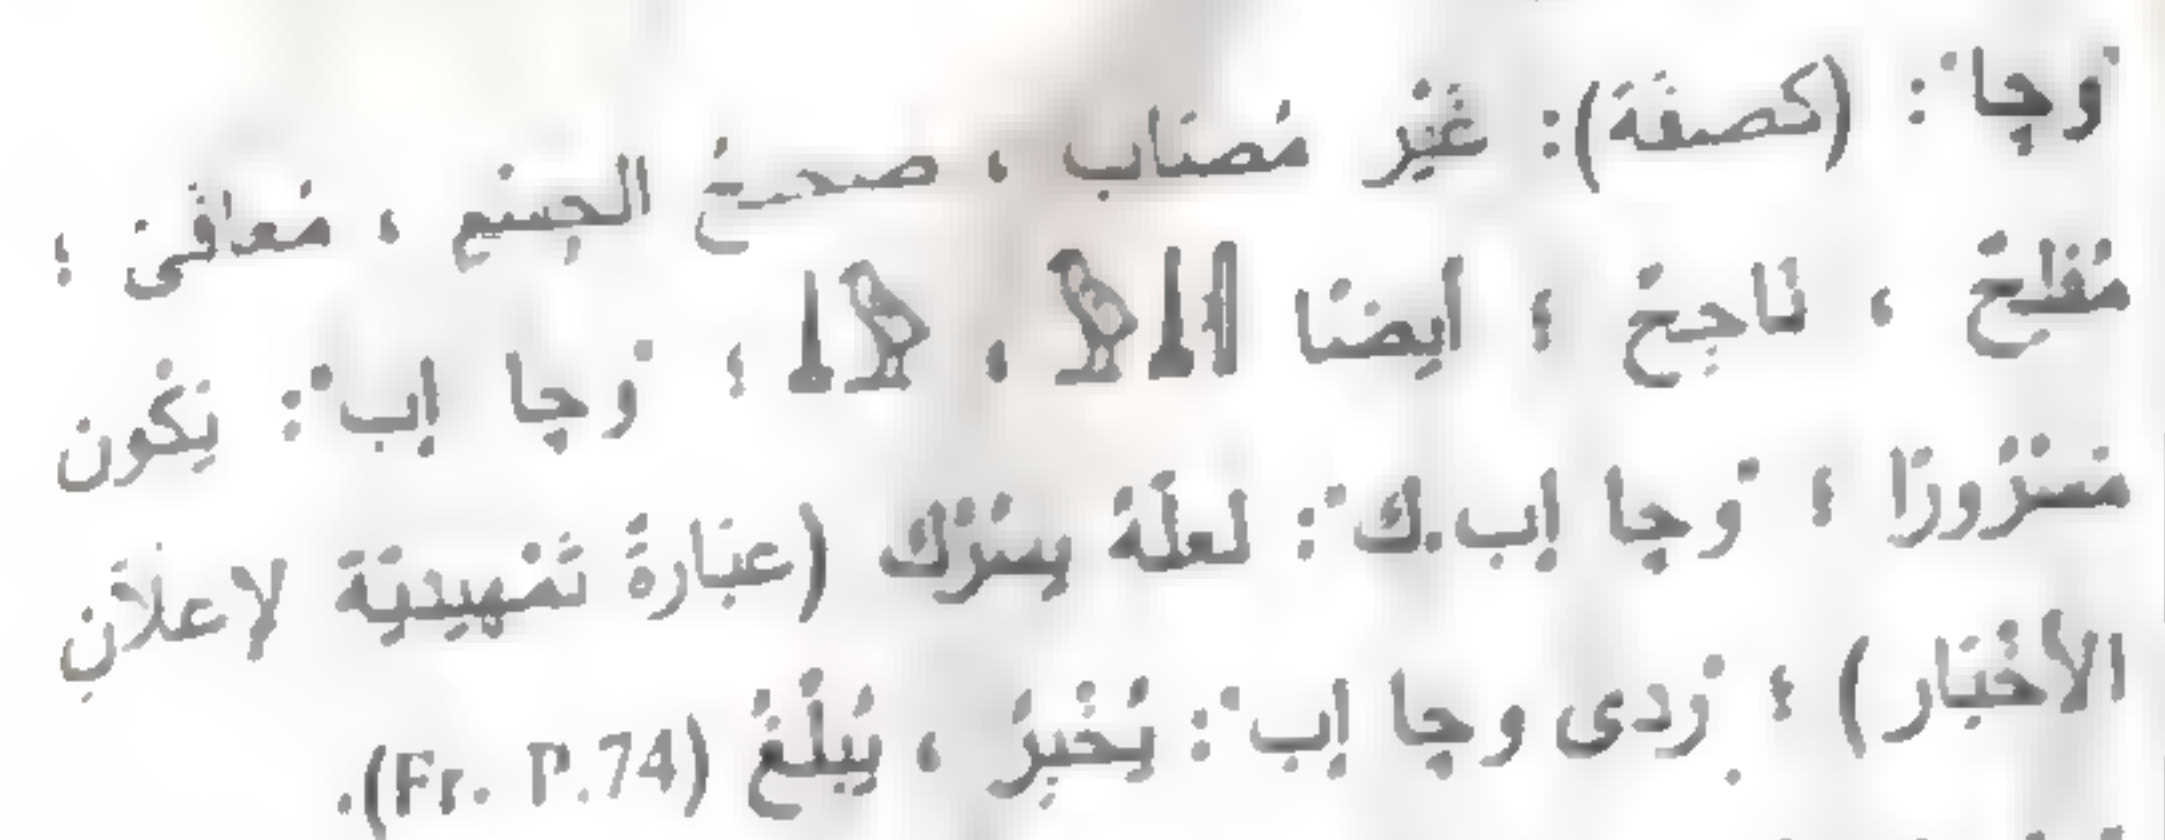 "وچا": (كصفة): غَيْر مُصَاب ، صحيحُ الجِسْمِ ، مُعافَىً ؛
مُفْلِحٌ ، نَاجِحٌ ؛ أيضًا 𓍑𓅱 ، 𓅱𓍑 ؛ "وچا إب": يَكُون
مَسْرُورًا ؛ "وچا إب.ك": لعلّهُ يسُرّك (عبَارةٌ تَمْهِيديّة لإعلاَنِ
الأَخْبَار) ؛ "ردى وچا إب": يُخْبِرُ ، يُبَلّغُ (Fr. P.74).